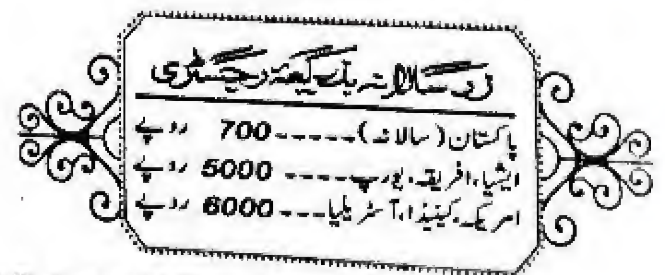 زر سالانہ بذریعہ رجسٹری
پاکستان (سالانہ)-----700 روپے
ایشیا، افریقہ، یورپ----5000 روپے
امریکہ، کینیڈا، آسٹریلیا---6000 روپے